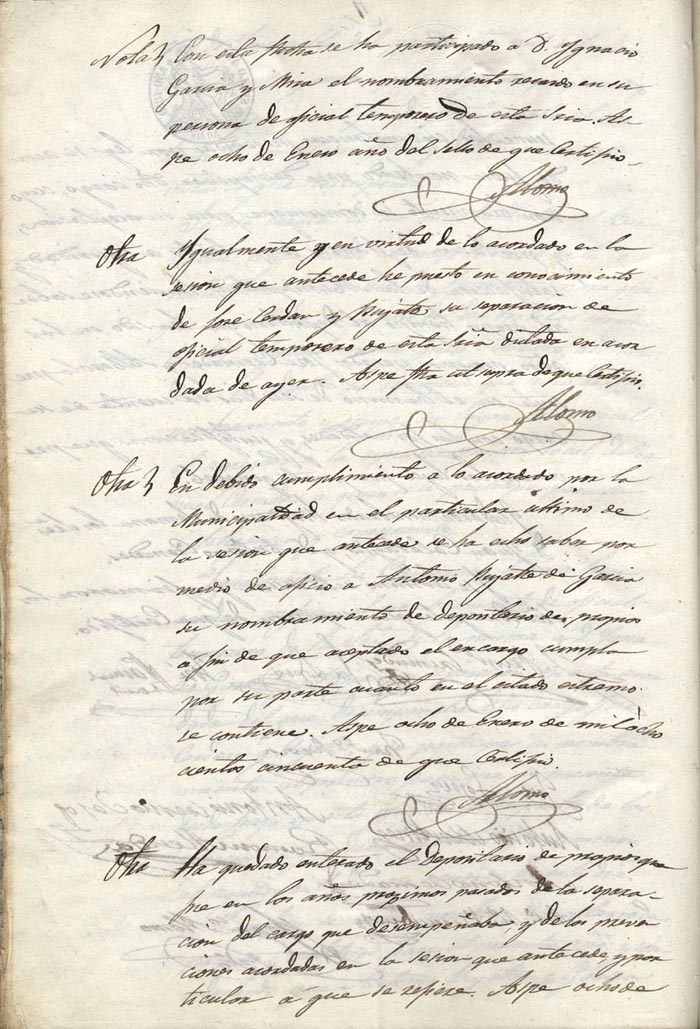 Nota} Con esta fecha se ha participado a D. Ygnacio
Garcia y Mira el nombramiento recaido en su
persona de oficial temporero de esta Sria. As-
pe ocho de Enero año del Sello de que Certifico.
Alonso
Otra Ygualmente y en virtud de lo acordado en la
sesion que antecede he puesto en conocimiento
de Jose Cerdan y Pujalte su separacion de
oficial temporero de esta Sria dictada en acor
dada de ayer. Aspe fha ut supra de que Certifico.
Alonso
Otra} En debido cumplimiento a lo acordado por la
Municipalidad en el particular ultimo de
la sesion que antecede se ha echo saber por
medio de oficio a Antonio Pujalte de Garcia
su nombramiento de depositario de propios
a fin de que aceptado el encargo cumpla
por su parte cuanto en el citado estremo
se contiene. Aspe ocho de Enero de mil ocho
cientos cincuenta de que Certifico.
Alonso
Otra Ha quedado enterado el Depositario de propios que
fue en los años proximos pasados de la separa-
cion del cargo que desempeñaba, y de las preven
ciones acordadas en la sesion que antecede y par
ticular a que se refiere. Aspe ocho de